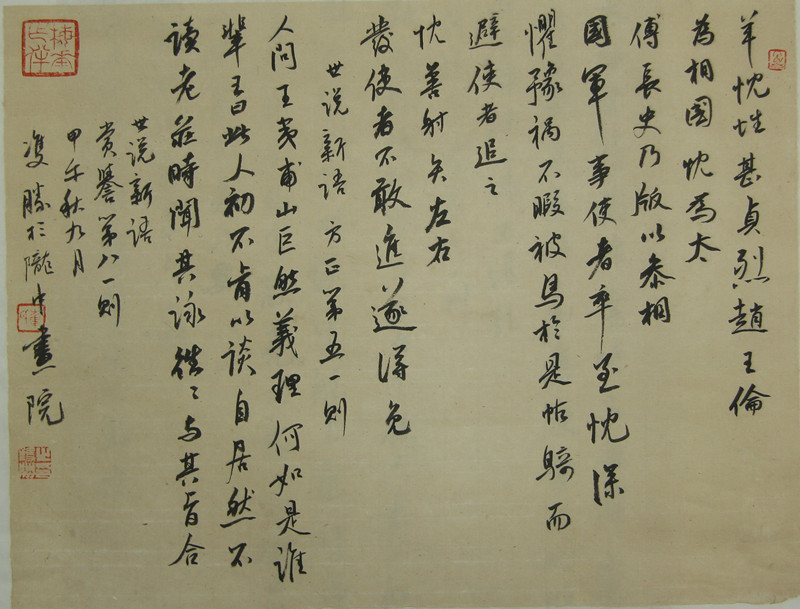 羊忱性甚貞烈趙王倫
為相國忱為太
傅長史乃版以参相
國軍事使者卒至忱深
懼豫禍不暇被馬於是帖騎而
避使者追之
忱善射矢左右
發使者不敢進遂得免
世说新语 方正第五一则
人問王夷甫山巨然義理何如是誰
輩王曰此人初不肯以谈自居然不
读老莊時聞其詠往〻与其旨合
世说新语
赏譽第八一则
甲午秋九月
于隴中畫院